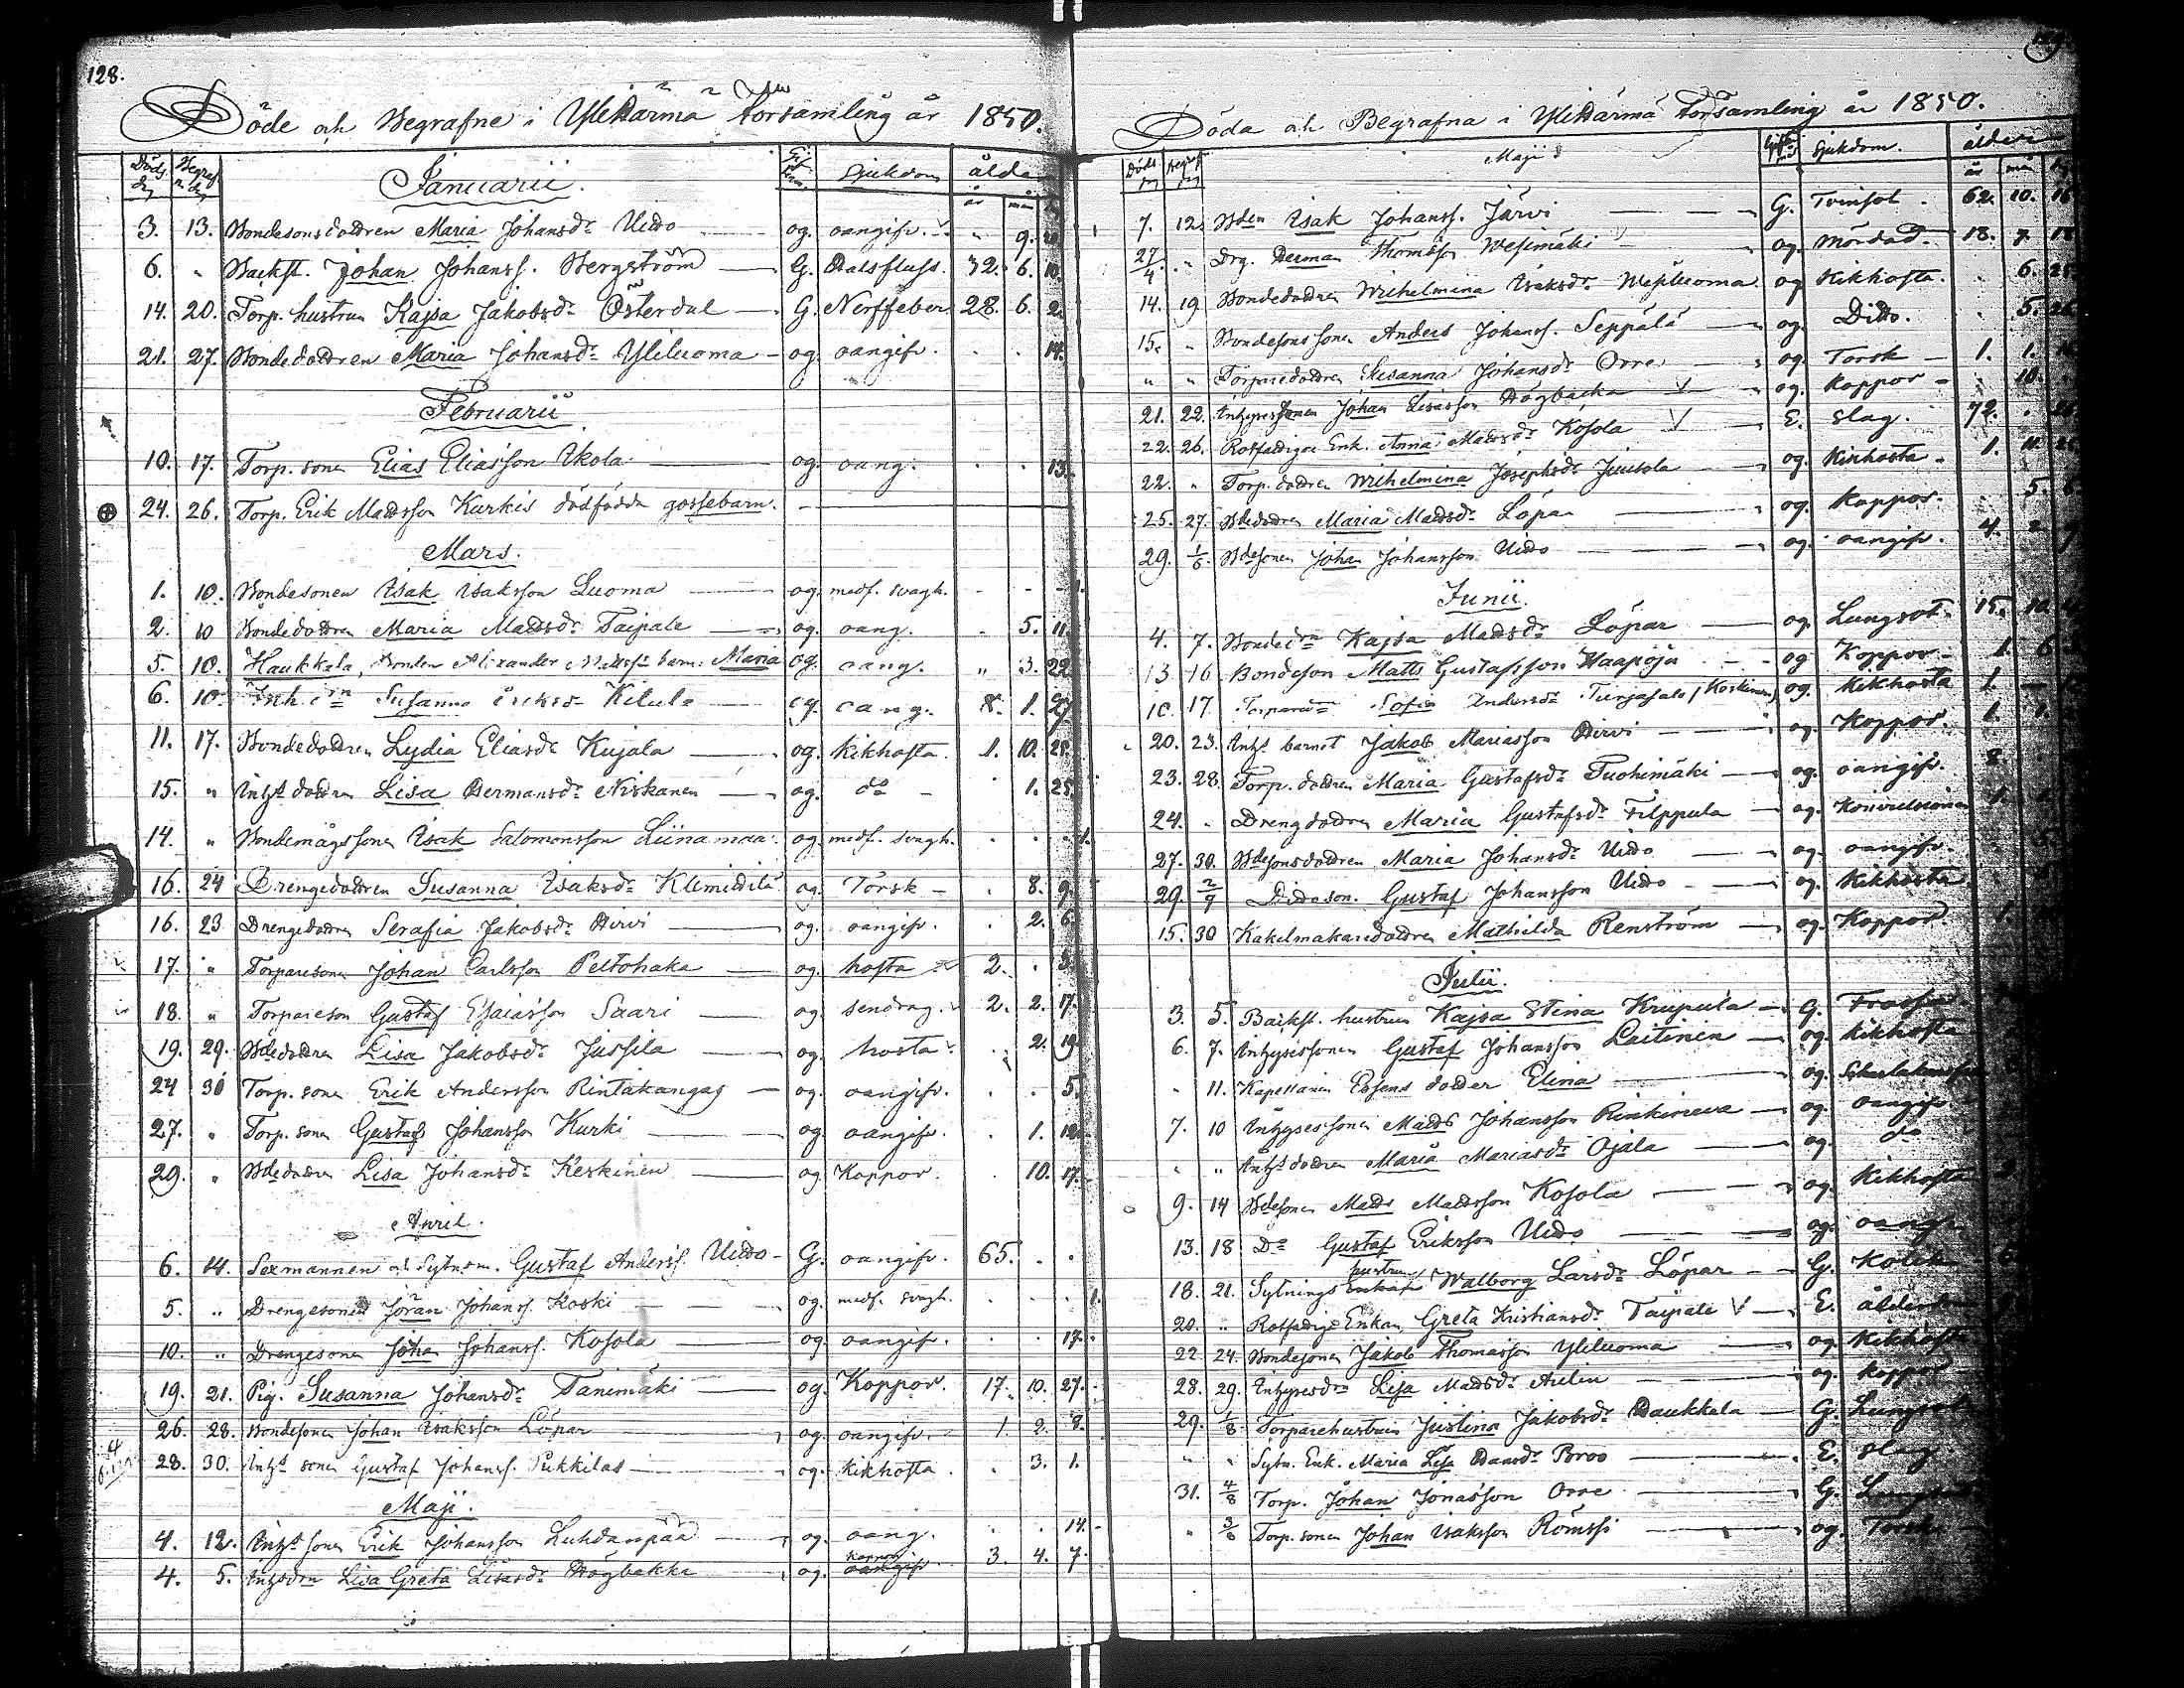 128.
Döde och Begrafne i Ylihärmä Församling år 1850.
Döds dag Begrafn. dag Januarii. Sjukdom ålder
år mån
3. 13. Bondesonsdottren Maria Johansd:r Uitto og. oangifv. " 9.
6. " Backst. Johan Johanss. Bergström G. Halsfluss. 32. 6. 10.
14. 20. Torp. hustrun Kajsa Jakobsd:r Österdal G. Nerffeber 28. 6. 2.
21. 27. Bondedottren Maria Johansd:r Yliluoma og. oangifv. . . 14.
Februarii
10. 17. Torp. sonen Elias Eliasson Ukola og. oang. . . 13.
24. 26. Torp. Erik Mattsson Kurkis dödfödda gossebarn.
Mars.
1. 10. Bondesonen Isak Isaksson Luoma og. medf. svagh. - - 1.
2. 10 Bondedottren Maria Mattsd:r Taipale og. oang. . 5. 11.
5. 10. Haukkala, Bonden Alexander Mattss:s barn: Maria og. oang. " 3. 22.
6. 10. Inh. d:r Susanna Eriksd:r Kitula og. oang. 8. 1. 27.
11. 17. Bondedottren Lydia Eliasd:r Kujala og. kikhosta. 1. 10. 28.
15. " Inh:s dottren Lisa Hermansd:r Niskanen og. d:o - 1. 25.
14. " Bondemågssonen Isak Salomonsson Liinamaa og. medf. svagh. . . 1.
16. 24 Drengedottren Susanna Isaksd:r Klemettilä og. Torsk - . 8. 9.
16. 23 Drengedottren Serafia Jakobsd:r Hirvi og. oangifv. . 2. 6.
17. " Torparesonen Johan Carlsson Peltohaka og. hosta 2. . 3.
18. " Torpareson Gustaf Esaiasson Saari og. sendrag. 2. 2. 17.
19. 29. Bdedottren Lisa Jakobsd:r Jussila og. hosta . 2. 19.
24 30 Torp. sonen Erik Andersson Rintakangas og. oangifv. . . 5.
27. " Torp. sonen Gustaf Johansson Kurki og. oangifv. . 1. 12.
29. " Bdedottren Lisa Johansd:r Keskinen og. Koppor. . 10. 17.
April.
6. 14. Sexmannen och Sytnsm. Gustaf Anderss. Uitto G. oangifv. 65. . .
5. " Drengesonen Johan Johanss. Koski og. medf. svagh. . . 1.
10. " Drengesonen Johan Johanss. Kosola og. oangifv. . . 17.
19. 21. Pig. Susanna Johansd:r Tanimäki og. Koppor. 17. 10. 27.
26. 28. Bondesonen Johan Isaksson Löpar og. oangifv. 1. 2. 8.
28. 30. Inh:s sonen Gustaf Johanss. Pukkilas og. kikhosta . 3. 1.
Maji.
4. 12. Inh:s sonen Erik Johansson Luhdanpää og. oang. . . 14.
4. 5. Inhsdtrn Lisa Greta Lisasd:r Högbakka og. koppor oangifv 3. 4. 7.
Döda och Begrafna i Ylihärmä Församling år 1850.
Maji Sjukdom. ålder
år mån
7. 12. Bden Isak Johanss. Järvi G. Tvinsot. 62. 10. 16
27/4 " Drg. Herman Thomsson Wesimäki og. Mördad. 18. 7. 18
14. 19 Bondedottren Wilhelmina Isaksd:r Wesiluoma og Kikhosta. . 6. 25
15. " Bondesons sonen Anders Johanss. Seppälä og. Ditto. . 5. 26
" " Torparedottren Susanna Johansd:r Orre og. Torsk 1. 1.
21. 22. Inhysessonen Johan Lisasson Högbacka og. Koppor . 10.
22. 26. Rotfattiga Enk. Anna Mattsd:r Kosola E. Slag. 72.
22. " Torp. dottren Wilhelmina Josephsd:r Juusola og. Kikhosta 1. 11.
25. 27. Bdedottren Maria Mattsd:r Löpar og. Koppor. . 5. 6.
29. 1/6. Bdesonen Johan Johansson Uitto og. oangifv. 4. 2.
Junii.
4. 7. Bonded:rn Kajsa Mattsd:r Löpar og. Lungsot. 15. 10
13 16 Bondeson Matts Gustafsson Haapoja og Koppor 1. 6
10. 17. Torpared:r Sofia Andersd:r Turjasalo (Koskinen) og. Kikhosta 1.
20. 23. Inh:s barnet Jakob Mariasson Hirvi og. Koppor. 1. 1.
23. 28. Torp. dottren Maria Gustafsd:r Tuohimäki og. oangifv. 8.
24. " Drengdottren Maria Gustafsd:r Filppula og. Konvulsioner 1. 1.
27. 30. Bdesonsdottren Maria Johansd:r Uitto og. oangifv. . 5.
29. 2/7 Ditto son. Gustaf Johansson Uitto og. Kikhosta
15. 30 Kakelmakaredottren Mathilda Renström og. Koppor 1.
Julii.
3. 5. Backst. hustrun Kajsa Stina Krupula G.
6. 7. Inhysessonen Gustaf Johansson Laitinen og. Kikhosta
" 11. Kapellanen Essens dotter Elina og.
7. 10 Inhysessonen Matts Johansson Rinkineva og. oangifv.
" " Inh:s dottren Maria Mariasd:r Ojala og. d:o
9. 14 Bdesonen Matts Mattsson Kosola og. Kikhosta
13. 18 D:o Gustaf Eriksson Uitto og. oangifv
18. 21. Sytnings hustrun Walborg Larsd:r Löpar G. Kolik
20. " Rotfattige Enkan Greta Kristiansd:r Taipale E. ålderdom
22 24. Bondesonen Jakob Thomasson Yliluoma og. Kikhosta
28. 29. Inhysesd:r Lisa Mattsd:r Autin og. koppor
29. 1/8 Torparehustrun Justina Jakobsd:r Haukkala G. Lungsot
" " Sytn. Enk. Maria Lisa Hansd:r Broo E. slag
31. 4/8 Torp. Johan Jonasson Orre G. Lungsot
" 3/8 Torp. sonen Johan Isaksson Römssi og. Torsk